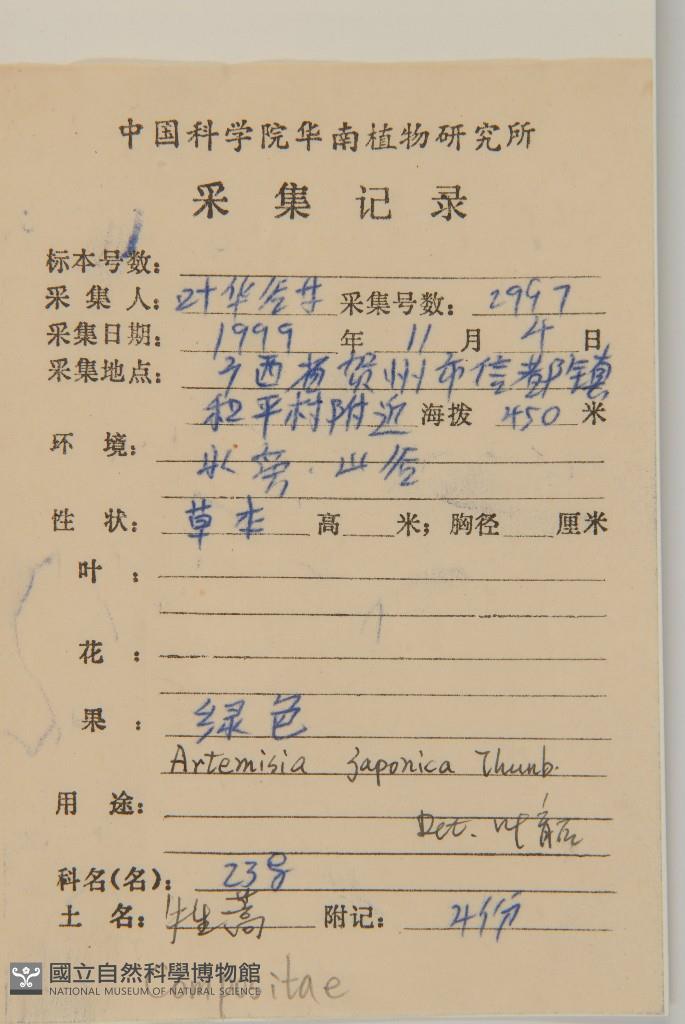 中国科学院华南植物研究所
采集记录
标本号数：
采集人：叶华谷等 采集号数：2997
采集日期：1999年11月4日
采集地点：广西省贺州市信都镇
和平村附近 海拨 450 米
环境：
水旁．山谷
性状：草本 高 米；胸径 厘米
叶：
花：
果：绿色
Artemisia japonica Thunb.
用途：
Det. 叶
科名(名)：238
土名：牡蒿 附记：4份
國立自然科學博物館
NATIONAL MUSEUM OF NATURAL SCIENCE
Compositae